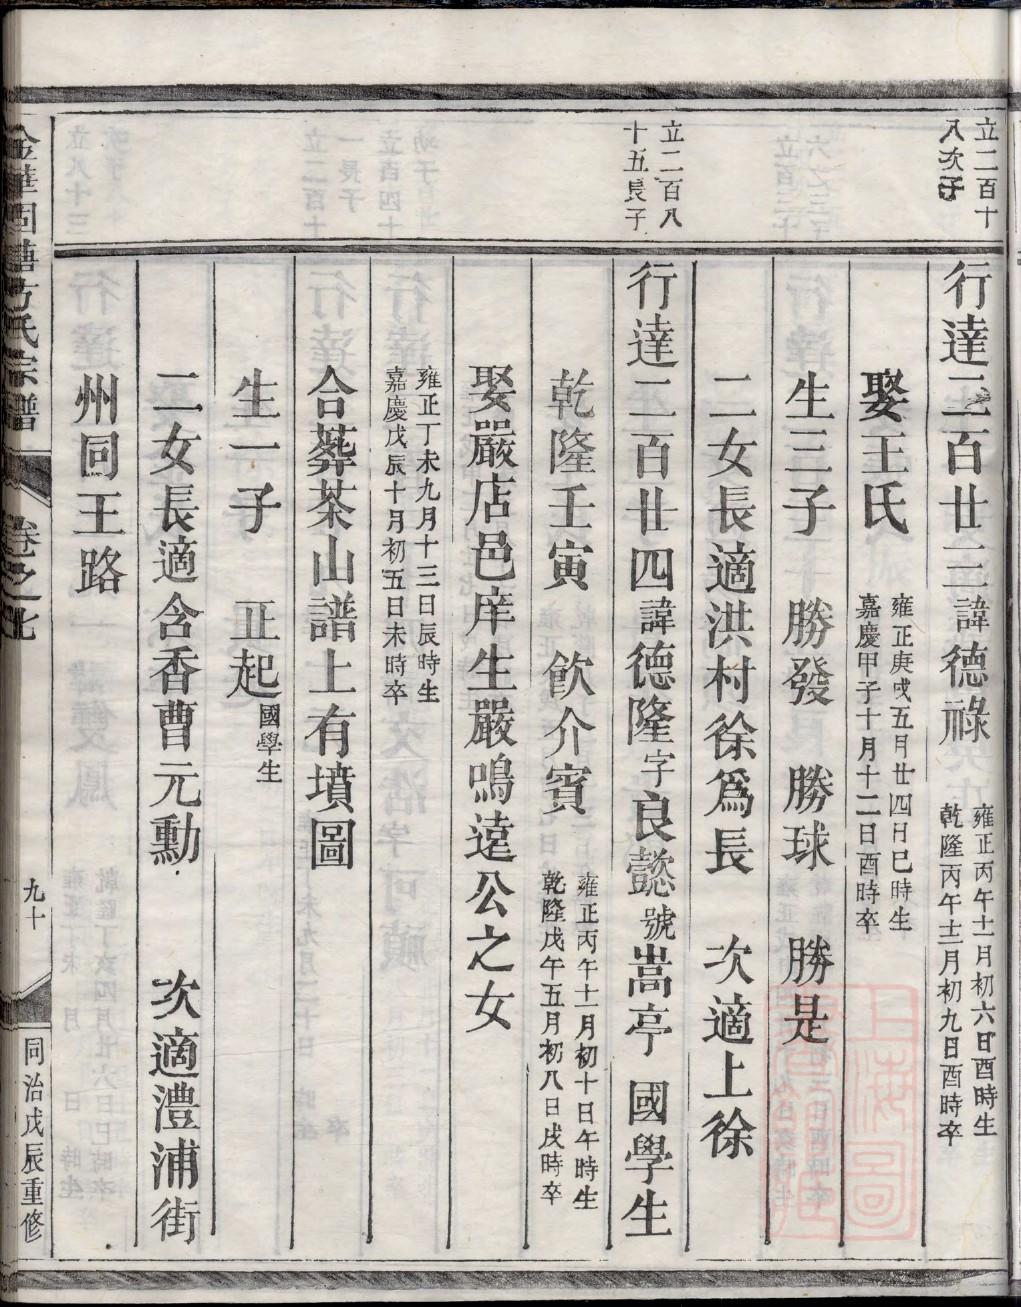 立二百十
八次子
行達二百廿三諱德祿
雍正丙午十一月初六日酉時生
乾隆丙午十二月初九日酉時卒
娶王氏
雍正庚戌五月廿四日巳時生
嘉慶甲子十月十二日酉時卒
生三子 勝發 勝球 勝是
二女長適洪村徐爲長 次適上徐
立二百八
十五長子
行達二百廿四諱德隆字良懿號嵩亭 國學生
乾隆壬寅 飮介賓
雍正丙午十一月初十日午時生
乾隆戊午五月初八日戌時卒
娶嚴店邑庠生嚴鳴遠公之女
雍正丁未九月十三日辰時生
嘉慶戊辰十月初五日未時卒
合葬茶山譜上有墳圖
生一子 正起國學生
二女長適含香曹元勳 次適澧浦街
州同王路
金華固塘方氏宗譜 卷之七 九十 同治戊辰重修